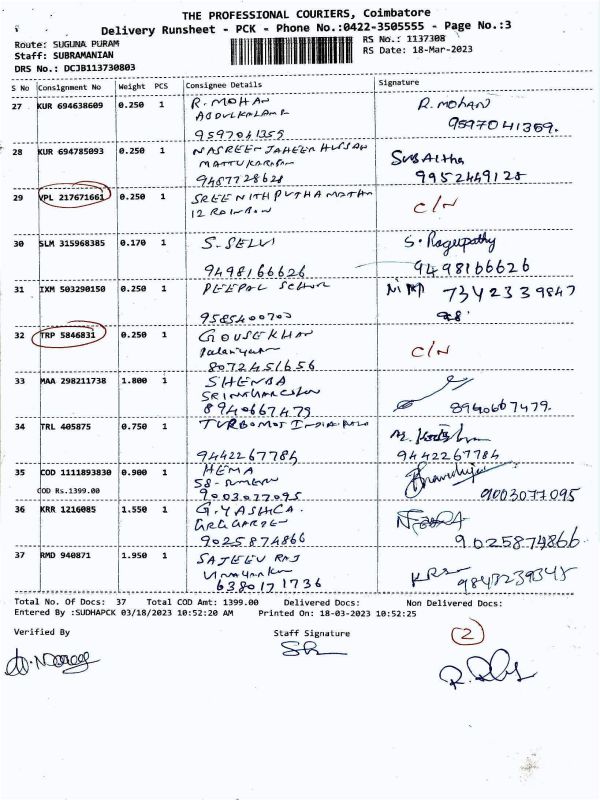 THE PROFESSIONAL COURIERS, Coimbatore
Delivery Runsheet - PCK - Phone No.:0422-3505555 - Page No.:3
Route: SUGUNA PURAM
RS No.: 1137308
Staff: SUBRAMANIAN
RS Date: 18-Mar-2023
DRS No.: DCJB113730803
S No Consignment No Weight PCS Consignee Details Signature
27 KUR 694638609 0.250 1 R. MOHAN R. MOHAN
ABDULKALAM
9597041359 9597041359.
28 KUR 694785093 0.250 1 NASREEN JAHEER HUSSAN
9487728628 9952449128
29 VPL 217671661 0.250 1 SREENITH C/N
12 RAINBOW
30 SLM 315968385 0.170 1 S. SELVI S. Ragupathy
9498166626 9498166626
31 IXM 503290150 0.250 1 PEEPAL SCHOOL 7342339847
9585400703
32 TRP 5846831 0.250 1 GOUSEKHAN C/N
8072451656
33 MAA 298211738 1.800 1 SHENBA
8940667479 8940667479.
34 TRL 405875 0.750 1 TURBOMOT INDIA
9442267784 9442267784
35 COD 1111893830 0.900 1 HEMA
COD Rs.1399.00 58-
9003077095 9003077095
36 KRR 1216085 1.550 1 G. YASHICA
9025874866 9025874866
37 RMD 940871 1.950 1 SAJEEV RAJ
6380171736
Total No. Of Docs: 37 Total COD Amt: 1399.00 Delivered Docs: Non Delivered Docs:
Entered By :SUDHAPCK 03/18/2023 10:52:20 AM Printed On: 18-03-2023 10:52:25
Verified By Staff Signature 2